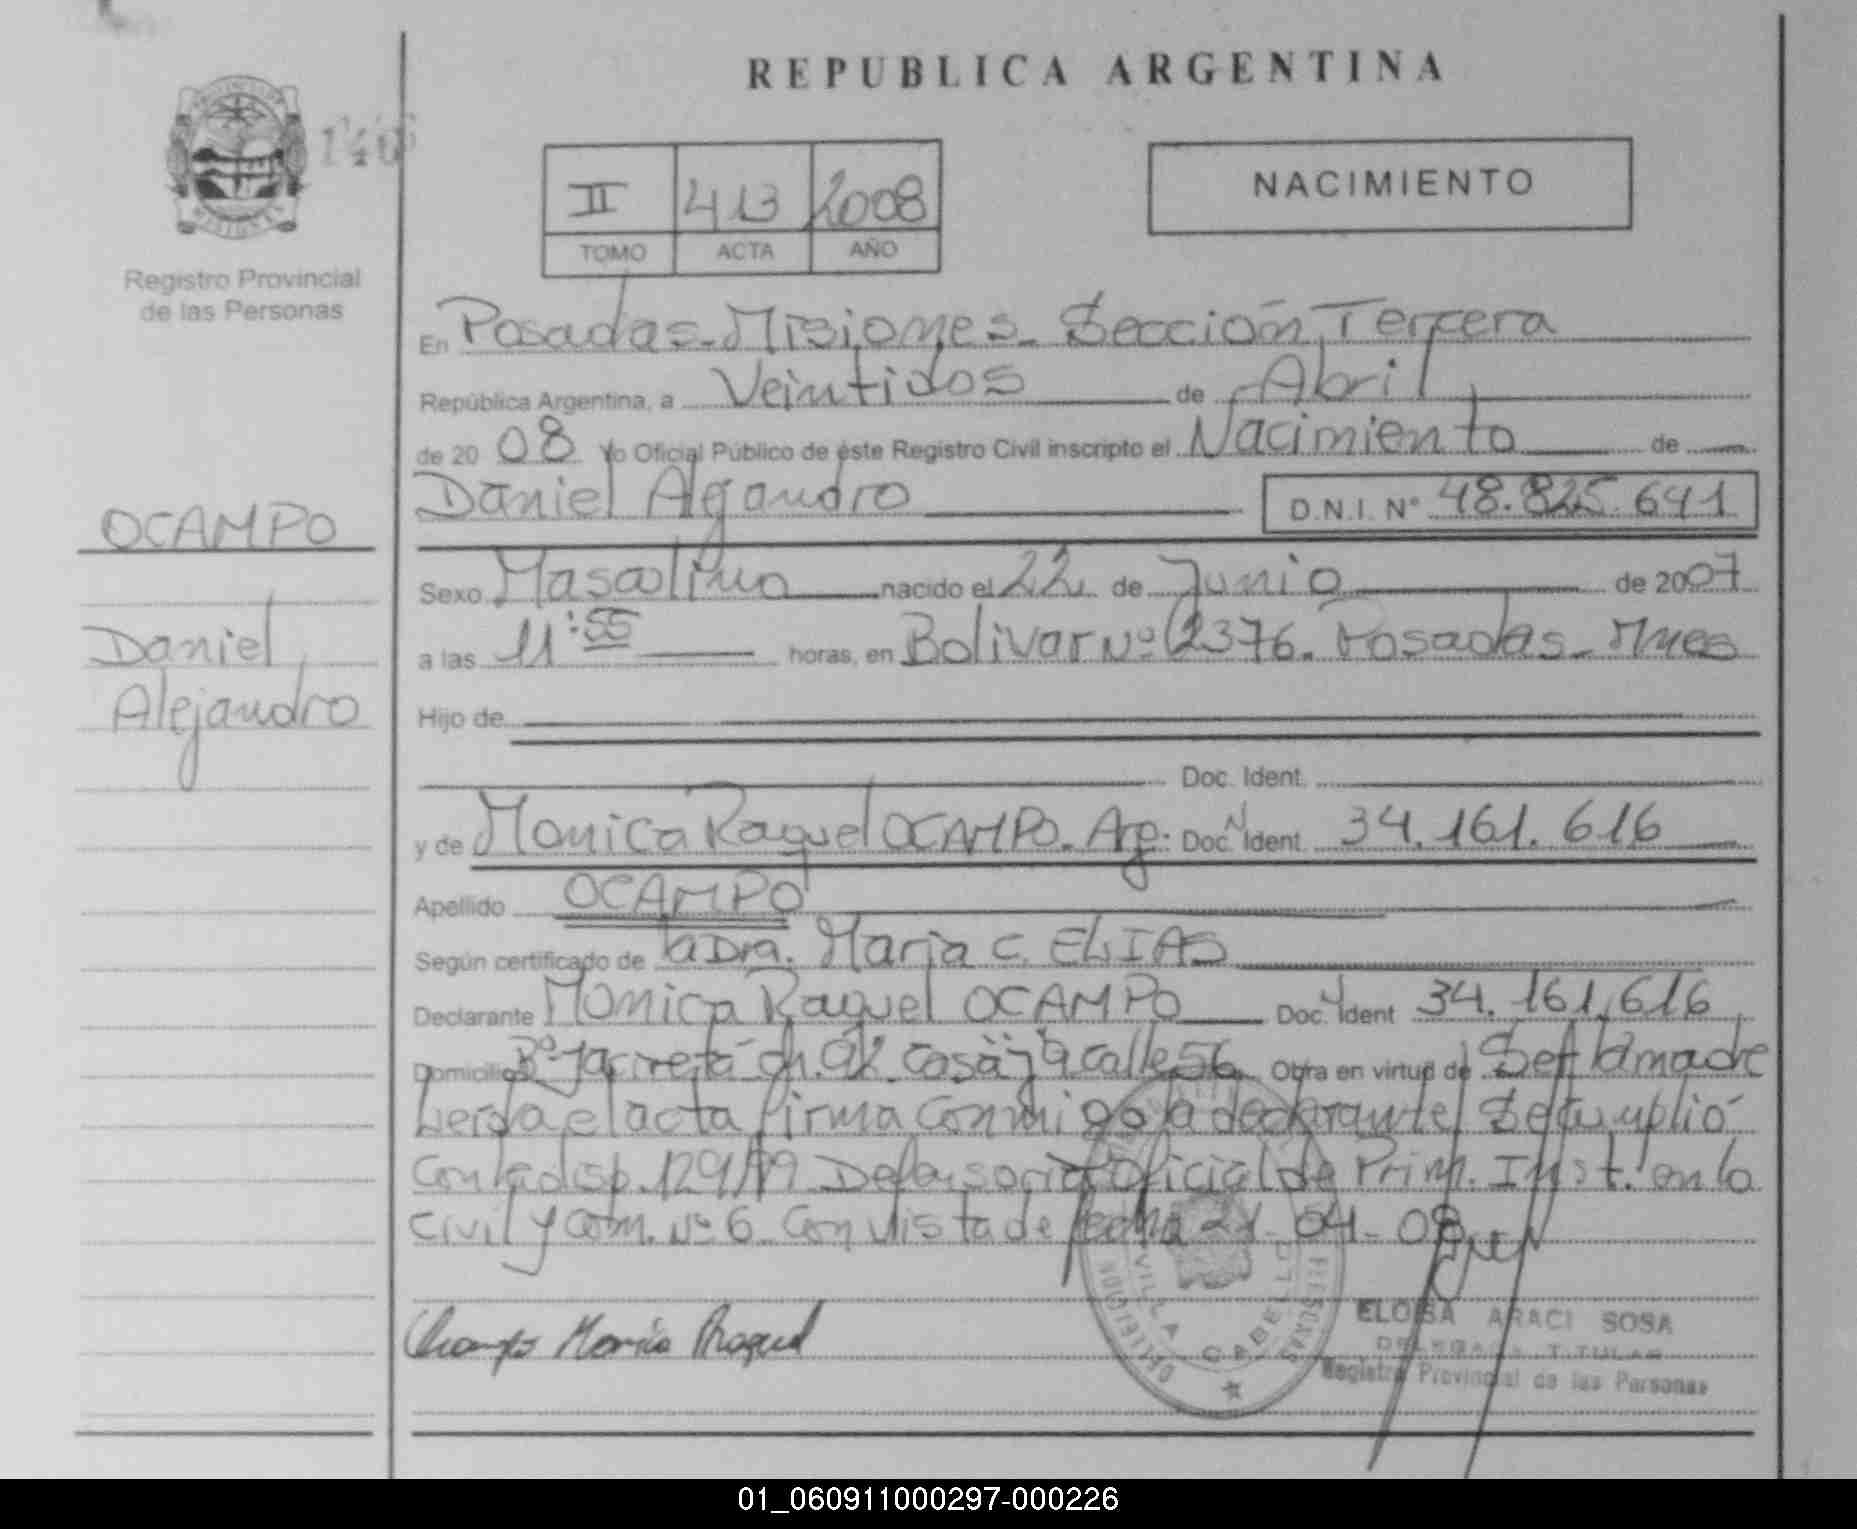 REPUBLICA ARGENTINA
146
II 413 2008
TOMO ACTA AÑO
NACIMIENTO
Registro Provincial
de las Personas
En Posadas-Misiones- Sección Tercera
República Argentina, a Veintidos de Abril
de 2008 Yo Oficial Público de éste Registro Civil inscripto el Nacimiento de
Daniel Alejandro D.N.I. Nº 48.825.641
OCAMPO
Daniel
Alejandro
Sexo Masculino nacido el 22 de Junio de 2007
a las 11:55 horas, en Bolivar Nº 2376. Posadas- Mnes
Hijo de
Doc. Ident.
y de Monica Raquel OCAMPO. Arg. Doc. Ident. 34.161.616
Apellido OCAMPO
Según certificado de la Dra. Maria C. ELIAS
Declarante Monica Raquel OCAMPO Doc. Ident 34.161.616
Domicilio Bº Yacireta ch. casa calle 56 Obra en virtud de Ser la madre
Leida el acta firma conmigo la declarante/ Se cumplió
Con la disp. 129/ Defensoria Oficial de Prim. Inst. en lo
Civil y Com. Nº 6 Con vista de fecha 21-04-08
Ocampo Monica Raquel
DELEGACION VILLA CABELLO
PERSONAS
ELOISA ARACI SOSA
DELEGADA TITULAR
Registro Provincial de las Personas
01_060911000297-000226